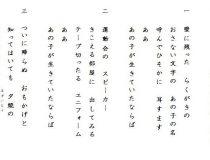 一 壁に残った らくがきの
おさない文字の あの子の名
呼んでひそかに 耳すます
ああ
あの子が生きていたならば
二 運動会の スピーカー
きこえる部屋に 出してみる
テープ切ったる ユニフォーム
ああ
あの子が生きていたならば
三 ついに帰らぬ おもかげと
知ってはいても 夕焼の